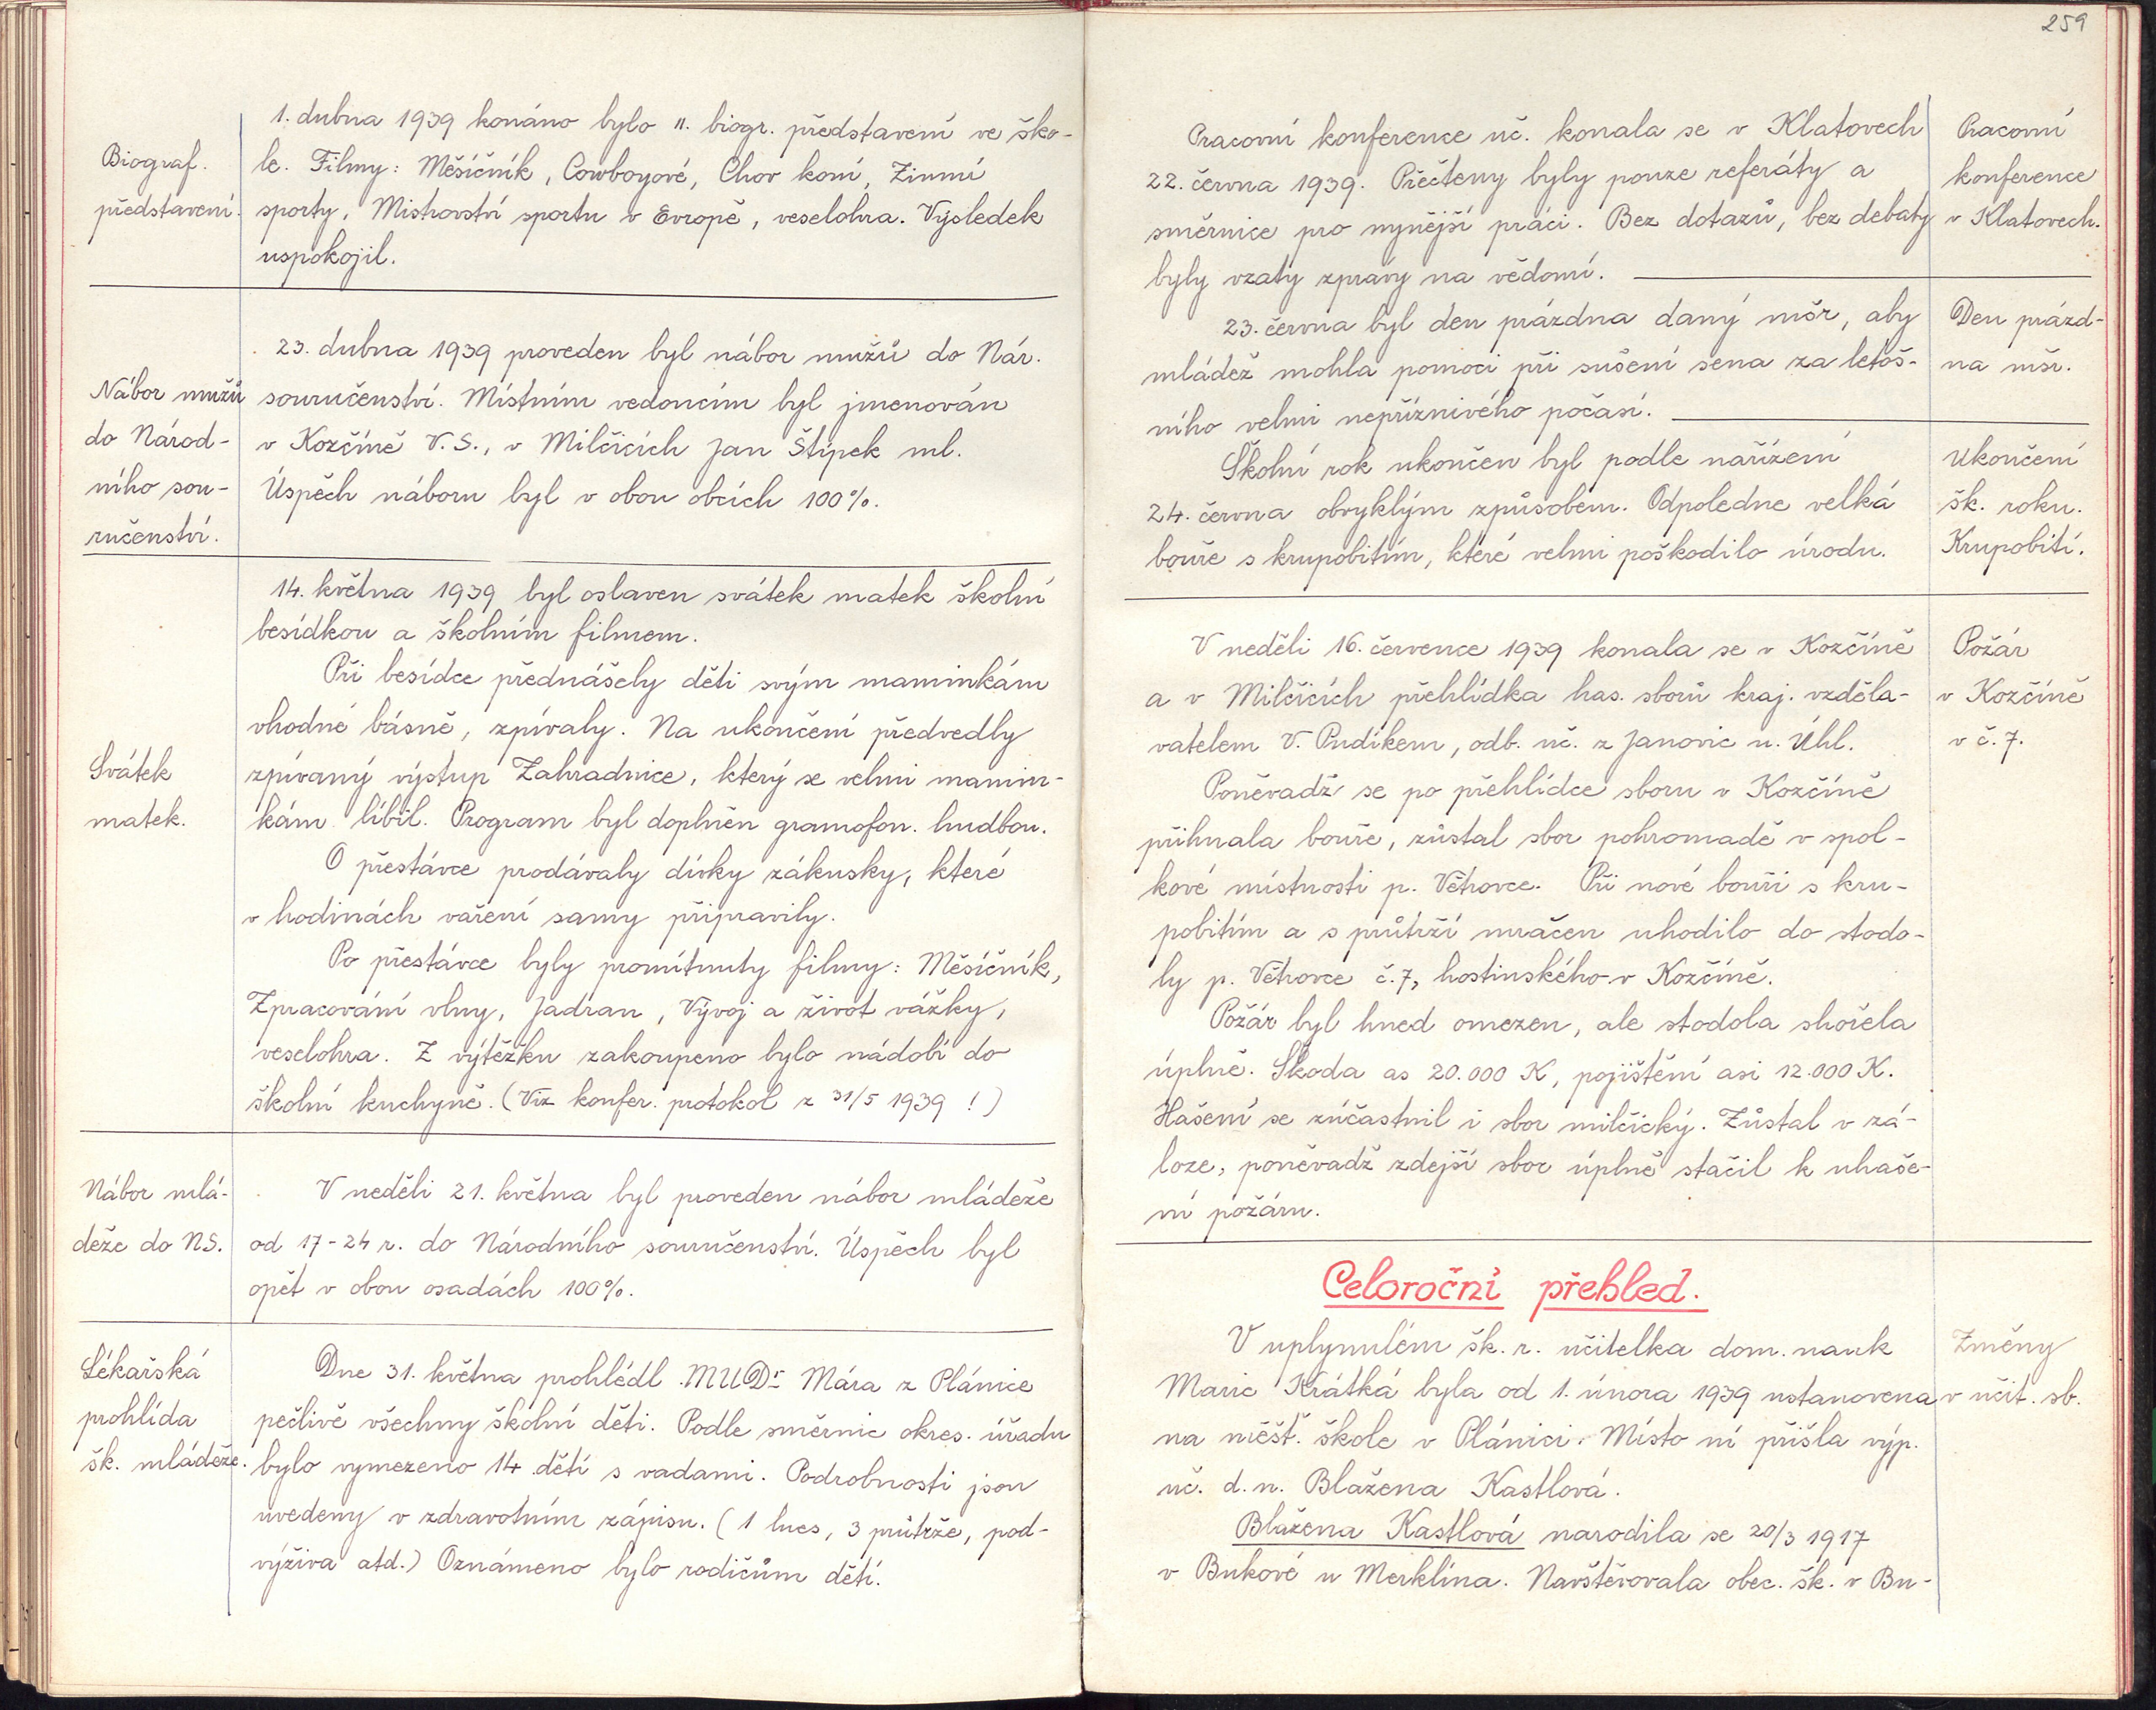 Biograf.
představení.
1. dubna 1939 konáno bylo II. biogr. představení ve ško-
le. Filmy: Měsíčník, Cowboyové, Chov koní, Zimní
sporty, Mistrovství sportu v Evropě, veselohra. Výsledek
uspokojil.
Nábor mužů
do Národ-
ního sou-
ručenství.
23. dubna 1939 proveden byl nábor mužů do Nár.
souručenství. Místním vedoucím byl jmenován
v Kozčíně V.S., v Milčicích Jan Štípek ml.
Úspěch náboru byl v obou obcích 100%.
Svátek
matek.
14. května 1939 byl oslaven svátek matek školní
besídkou a školním filmem.
Při besídce přednášely děti svým maminkám
vhodné básně, zpívaly. Na ukončení předvedly
zpívaný výstup Zahradnice, který se velmi mamin-
kám líbil. Program byl doplněn gramofon. hudbou.
O přestávce prodávaly dívky zákusky, které
v hodinách vaření samy připravily.
Po přestávce byly promítnuty filmy: Měsíčník,
Zpracování vlny, Jadran, Vývoj a život vážky,
veselohra. Z výtěžku zakoupeno bylo nádobí do
školní kuchyně. (Viz konfer. protokol z 31/5 1939!)
Nábor mlá-
deže do N.S.
V neděli 21. května byl proveden nábor mládeže
od 17-24 r. do Národního souručenství. Úspěch byl
opět v obou osadách 100%.
Lékařská
prohlída
šk. mládeže.
Dne 31. května prohlédl MUDr Mára z Plánice
pečlivě všechny školní děti. Podle směrnic okres. úřadu
bylo vymezeno 14 dětí s vadami. Podrobnosti jsou
uvedeny v zdravotním zápisu. (1 lues, 3 průtrže, pod-
výživa atd.) Oznámeno bylo rodičům dětí.
259
Pracovní konference uč. konala se v Klatovech
22. června 1939. Přečteny byly pouze referáty a
směrnice pro nynější práci. Bez dotazů, bez debaty
byly vzaty zprávy na vědomí.
Pracovní
konference
v Klatovech.
23. června byl den prázdna daný mšr, aby
mládež mohla pomoci při sušení sena za letoš-
ního velmi nepříznivého počasí.
Den prázd-
na mšr.
Školní rok ukončen byl podle nařízení
24. června obvyklým způsobem. Odpoledne velká
bouře s krupobitím, které velmi poškodilo úrodu.
Ukončení
šk. roku.
Krupobití.
V neděli 16. července 1939 konala se v Kozčíně
a v Milčicích přehlídka has. sborů kraj. vzděla-
vatelem V. Pudíkem, odb. uč. z Janovic n. Úhl.
Poněvadž se po přehlídce sboru v Kozčíně
přihnala bouře, zůstal sbor pohromadě v spol-
kové místnosti p. Větrovce. Při nové bouři s kru-
pobitím a s průtrží mračen uhodilo do stodo-
ly p. Větrovce č.7, hostinského v Kozčíně.
Požár byl hned omezen, ale stodola shořela
úplně. Škoda as 20.000 K, pojištění asi 12.000 K.
Hašení se zúčastnil i sbor milčický. Zůstal v zá-
loze, poněvadž zdejší sbor úplně stačil k uhaše-
ní požáru.
Požár
v Kozčíně
v č.7.
Celoroční přehled.
V uplynulém šk. r. učitelka dom. nauk
Marie Krátká byla od 1. února 1939 ustanovena
na měšť. škole v Plánici. Místo ní přišla výp.
uč. d. n. Blažena Kastlová.
Blažena Kastlová narodila se 20/3 1917
v Bukové u Merklína. Navštěvovala obec. šk. v Bu-
Změny
v učit. sb.